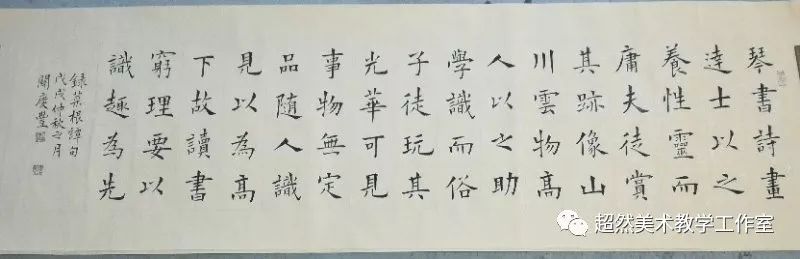 琴書詩畫
達士以之
養性靈而
庸夫徒賞
其跡像山
川雲物高
人以之助
學識而俗
子徒玩其
光華可見
事物無定
品隨人識
見以為高
下故讀書
窮理要以
識趣為先
錄菜根譚句
戊戌仲秋之月
關慶豐
超然美术教学工作室